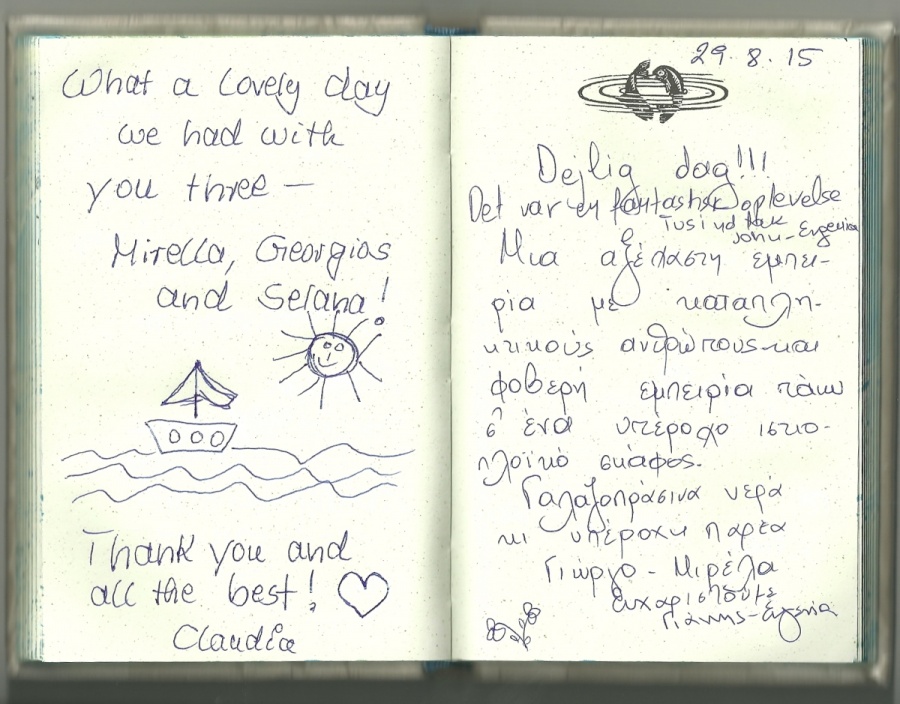 What a lovely day
we had with
you three —
Mirella, Georgios
and Selana!
Thank you and
all the best! ♡
Claudia
29.8.15
Dejlig dag!!!
Det var en fantastisk oplevelse
Tusind tak
John-Evgenia
Μια αξέχαστη εμπει-
ρία με καταπλη-
κτικούς ανθρώπους και
φοβερή εμπειρία πάνω
σ' ένα υπέροχο ιστιο-
πλοϊκό σκάφος.
Γαλαζοπράσινα νερά
κι υπέροχη παρέα
Γιώργο - Μιρέλα
Ευχαριστούμε
Γιάννης-Ευγενία